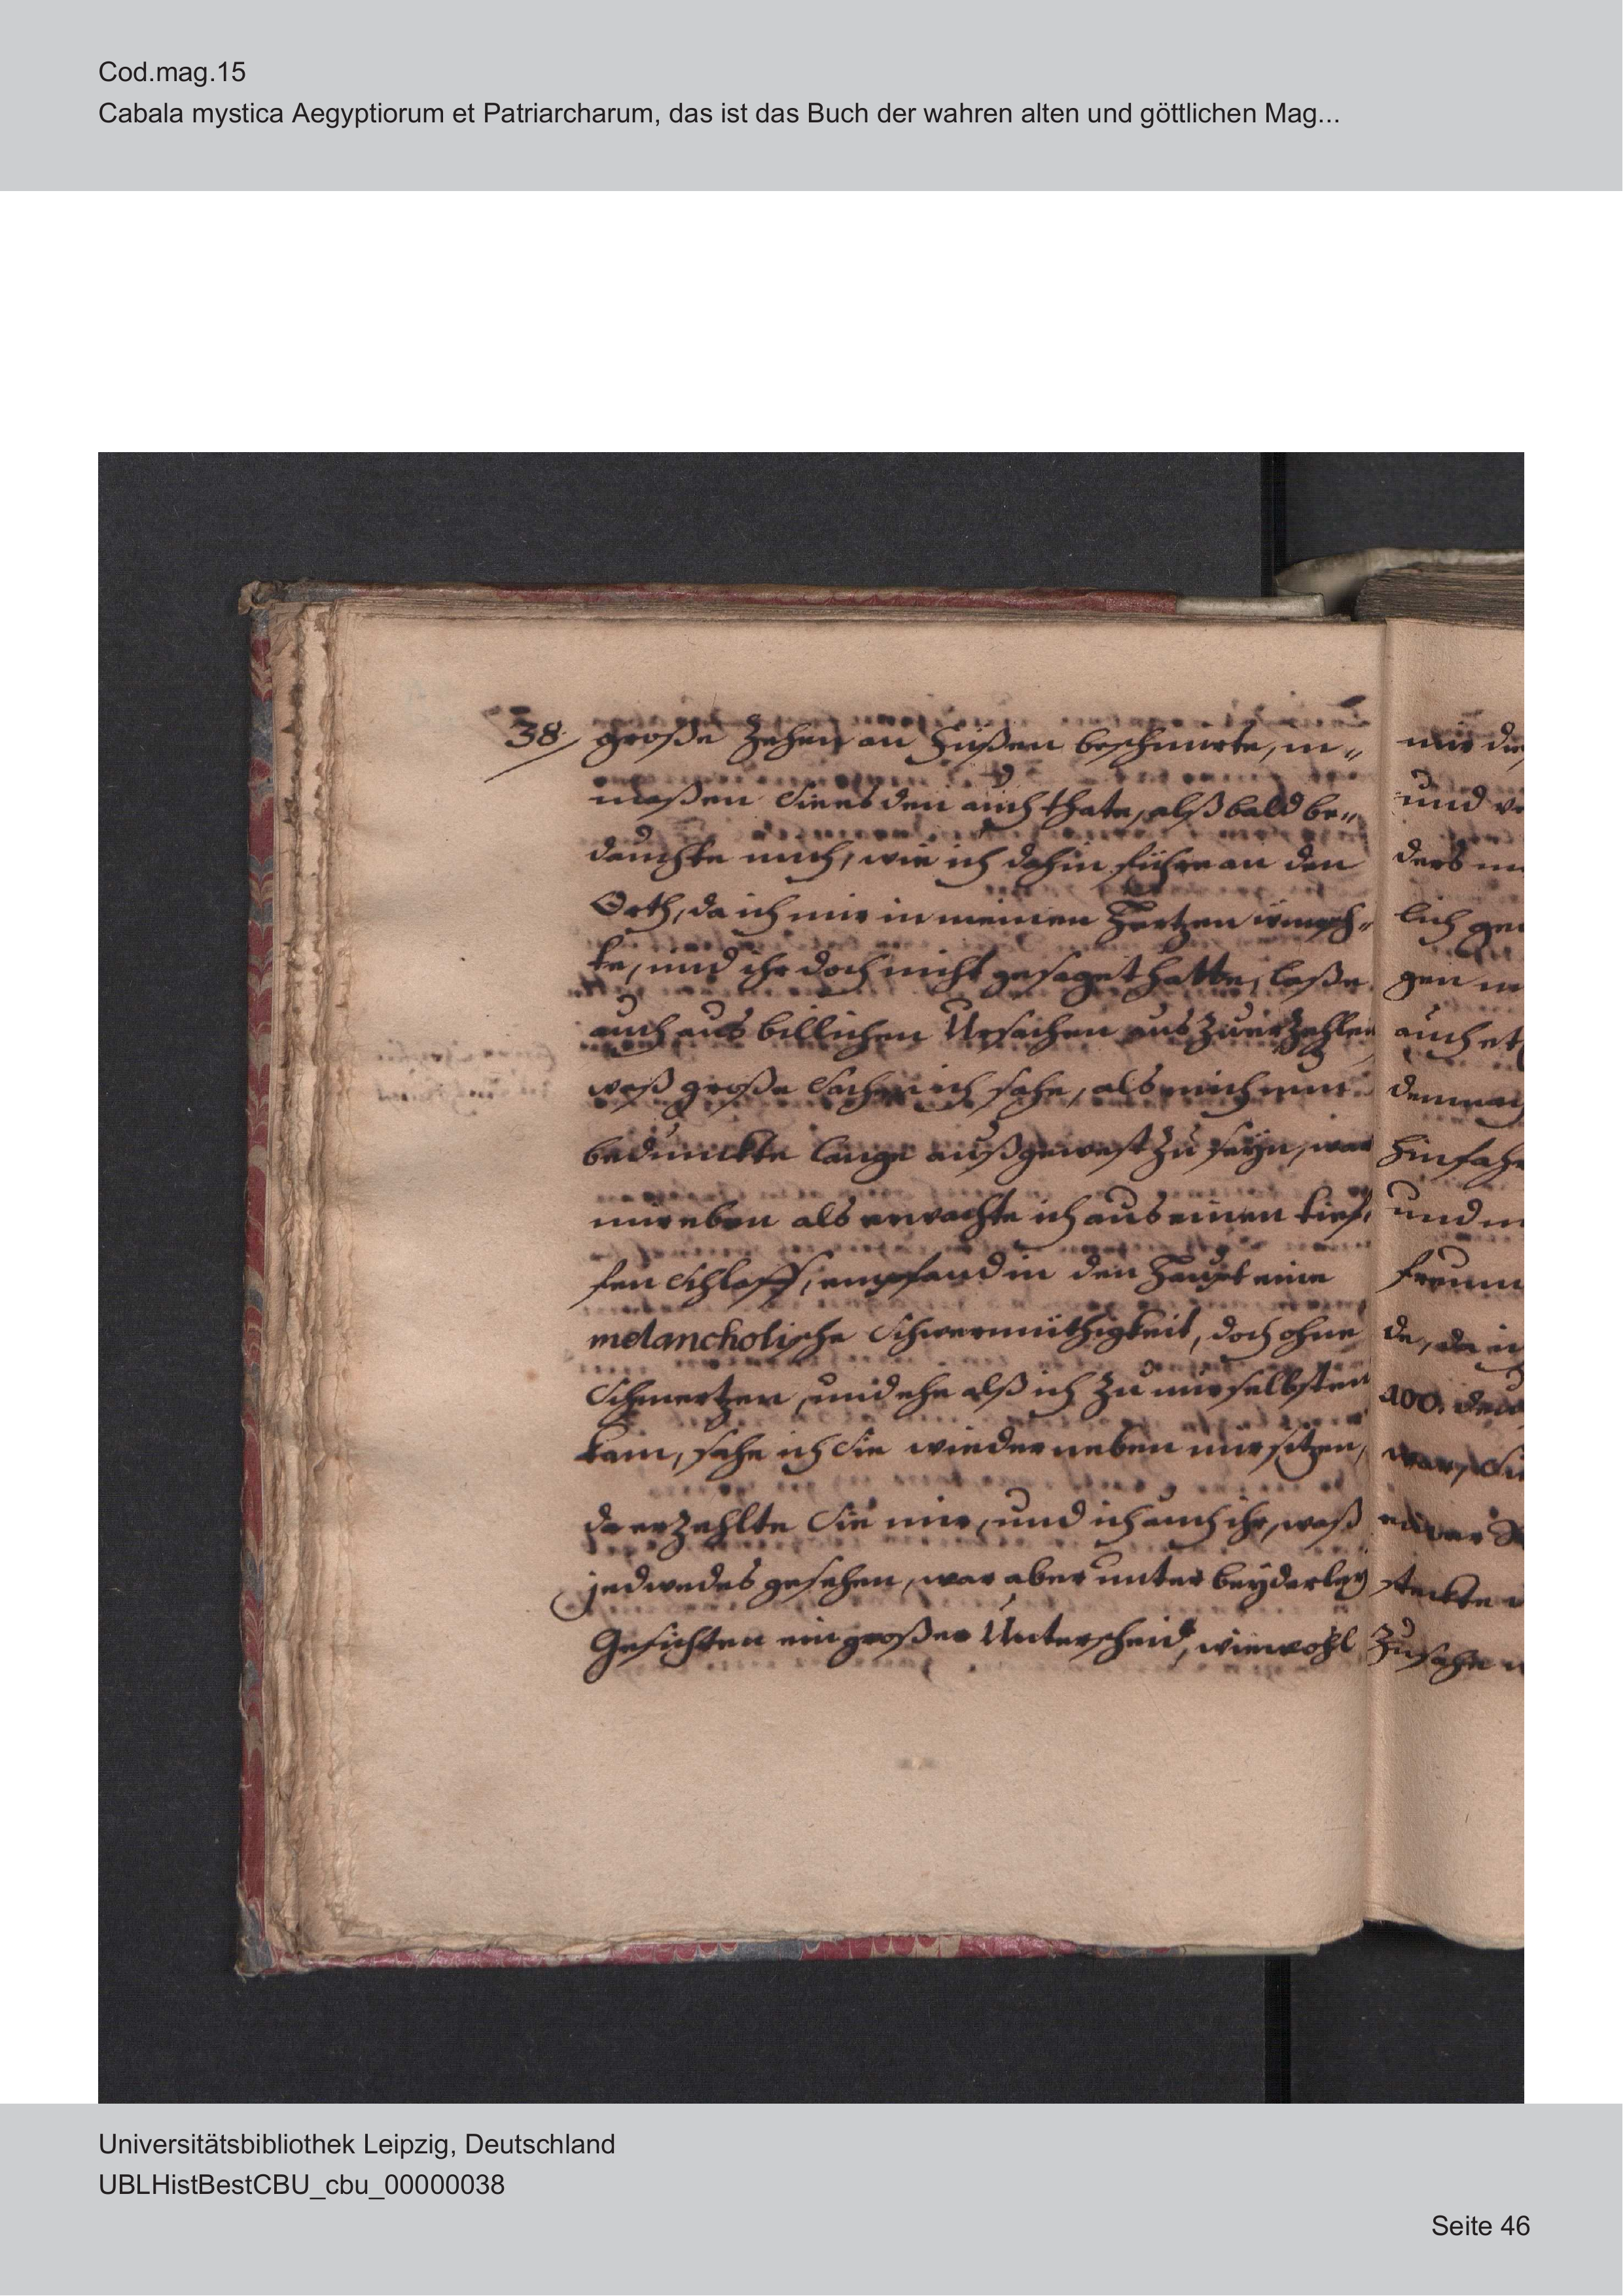 Cod.mag.15
Cabala mystica Aegyptiorum et Patriarcharum, das ist das Buch der wahren alten und göttlichen Mag...
38 große Zehen an Füßen beschmirte, in„
maßen Sie es den auch thate, alßbald be„
dauchte mich, wie ich dahin führe an den
Orth, da ich mir in meinen Hertzen wünsch„
te, und ihr doch nicht gesaget hatte, laße
auch aus billichen Ursachen aus zuerzehlen
waß große Sachen ich sahe, als mich nun
bedunckte lange außgewest zu seyn, war
mir eben als erwachte ich aus einen tief„
fen Schlaff, empfand in den Haupt eine
melancholische Schwermüthigkeit, doch ohne
Schmertzen, und ehe alß ich zu mir selbsten
kam, sahe ich Sie wieder neben mir sitzen,
da erzehlte Sie mir, und ich auch ihr, waß
jedwedes gesehen, war aber unter beyderley
Gesichten ein großer Unterscheid, wiewohl
mir die
und
ders
lich
gen
auch
hinfahr
und
de, da
100.
war, Sie
steckte
Zusahe
Universitätsbibliothek Leipzig, Deutschland
UBLHistBestCBU_cbu_00000038
Seite 46